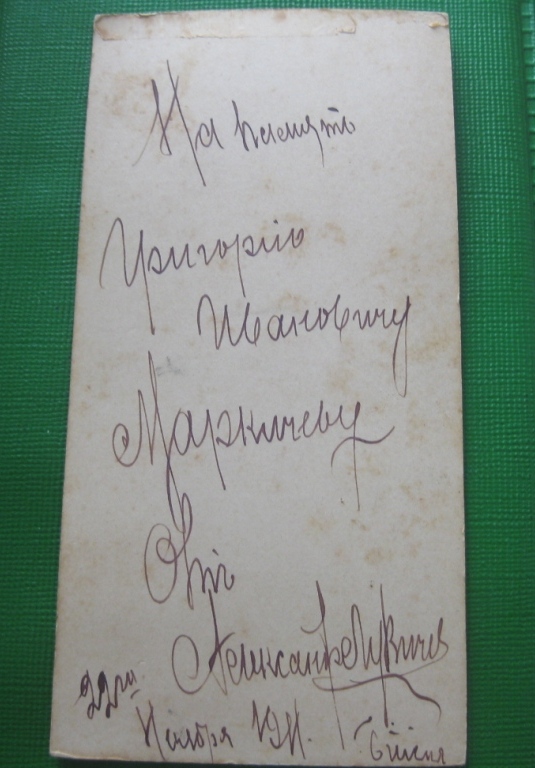 На память
Григорію
Ивановичу
Маркичеву
Отъ
22го
Ноября 1911.